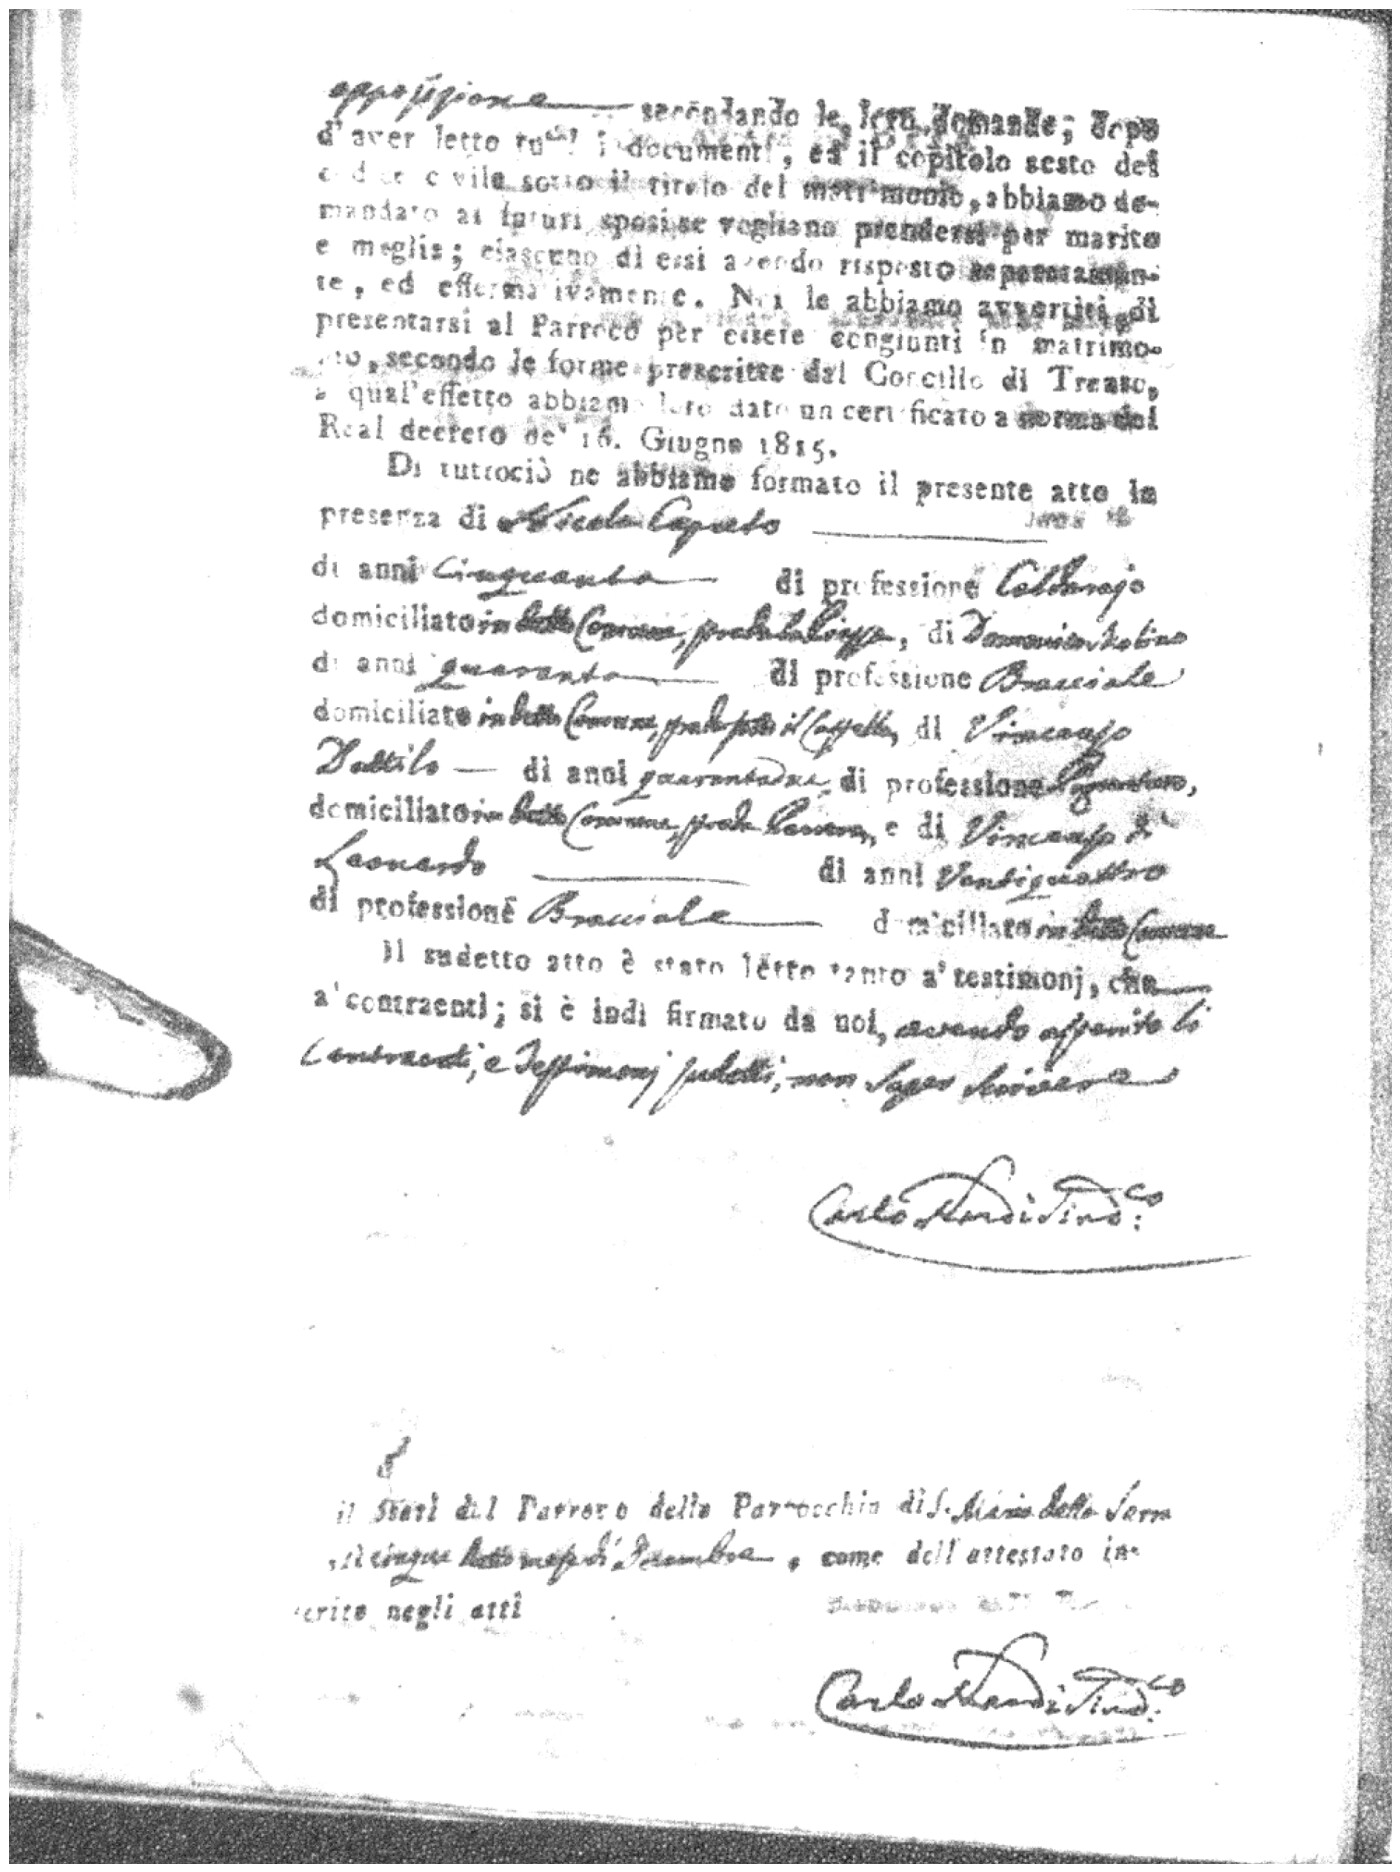 opposizione secondando le loro domande; dopo
d'aver letto tutti i documenti, ed il capitolo sesto del
codice civile sotto il titolo del matrimonio, abbiamo do-
mandato ai futuri sposi se vogliano prendersi per marito
e moglie; ciascuno di essi avendo risposto separatamen-
te, ed affermativamente. Noi le abbiamo avvertiti di
presentarsi al Parroco per essere congiunti in matrimo-
nio, secondo le forme prescritte dal Concilio di Trento,
a qual'effetto abbiamo loro dato un certificato a norma del
Real decreto de' 16. Giugno 1815.
Di tuttociò ne abbiamo formato il presente atto in
presenza di Nicola Caputo
di anni Cinquanta di professione Caldarajo
domiciliato in detto Comune, strada la Piazza, di Domenico
di anni quaranta di professione Bracciale
domiciliato in detto Comune, strada sotto il Castello, di Vincenzo
Dattilo — di anni quarantadue, di professione
domiciliato in detto Comune, strada e di Vincenzo di
Leonardo di anni Ventiquattro
di professione Bracciale domiciliato in detto Comune
Il sudetto atto è stato letto tanto a' testimonj, che
a' contraenti; si è indi firmato da noi, avendo asserito li
Contraenti, e Testimonj sudetti, non saper scrivere
Carlo Nardi Sind.co
il Stati dal Parroco della Parrocchia di S. Maria della Serra
li cinque detto mese di Decembre, come dell'attestato in-
serito negli atti
Carlo Nardi Sind.co